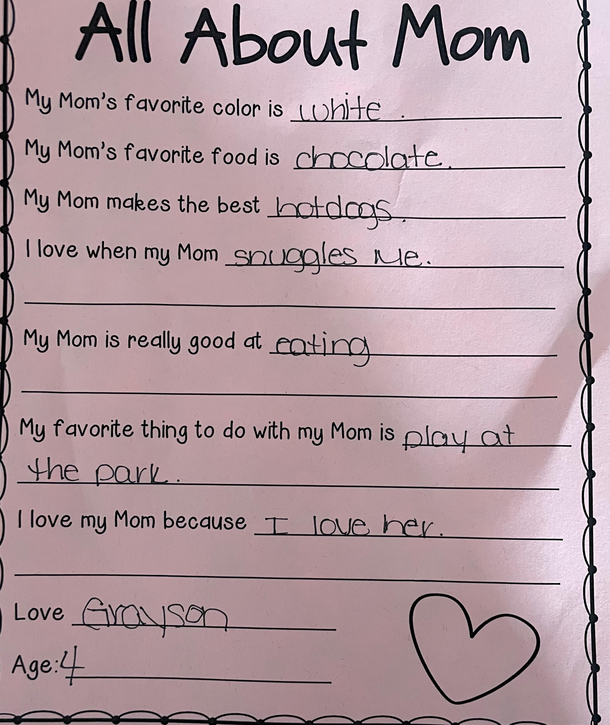 All About Mom
My Mom's favorite color is white.
My Mom's favorite food is chocolate.
My Mom makes the best hotdogs.
I love when my Mom snuggles me.
My Mom is really good at eating
My favorite thing to do with my Mom is play at
the park.
I love my Mom because I love her.
Love Grayson
Age: 4